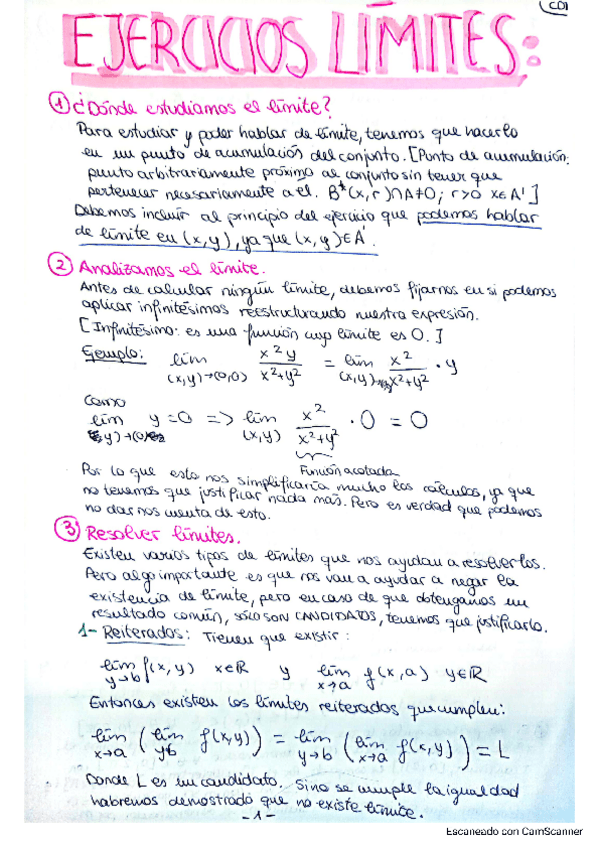 CDI
EJERCICIOS LÍMITES:
① ¿Dónde estudiamos el límite?
Para estudiar y poder hablar de límite, tenemos que hacerlo
en un punto de acumulación del conjunto. [Punto de acumulación:
punto arbitrariamente próximo al conjunto sin tener que
pertenecer necesariamente a él. B*(x,r)∩A≠0; r>0 x∈A']
Debemos incluir al principio del ejercicio que podemos hablar
de límite en (x,y), ya que (x,y)∈A'.
② Analizamos el límite.
Antes de calcular ningún límite, debemos fijarnos en si podemos
aplicar infinitésimos reestructurando nuestra expresión.
[Infinitésimo: es una función cuyo límite es 0.]
Ejemplo: lím (x,y)→(0,0) x²y / x²+y² = lím (x,y)→ x² / x²+y² · y
Como
lím y=0 => lím (x,y) x² / x²+y² · 0 = 0
Función acotada
Por lo que esto nos simplificaría mucho los cálculos, ya que
no tenemos que justificar nada más. Pero es verdad que podemos
no darnos cuenta de esto.
③ Resolver límites.
Existen varios tipos de límites que nos ayudan a resolverlos.
Pero algo importante es que nos van a ayudar a negar la
existencia de límite, pero en caso de que obtengamos un
resultado común, SÓLO SON CANDIDATOS, tenemos que justificarlo.
1- Reiterados: Tienen que existir:
lím y→b f(x,y) x∈ℝ y lím x→a f(x,a) y∈ℝ
Entonces existen los límites reiterados que cumplen:
lím x→a (lím yb f(x,y)) = lím y→b (lím x→a f(x,y)) = L
Donde L es un candidato. Sino se cumple la igualdad
habremos demostrado que no existe límite.
-1-
Escaneado con CamScanner